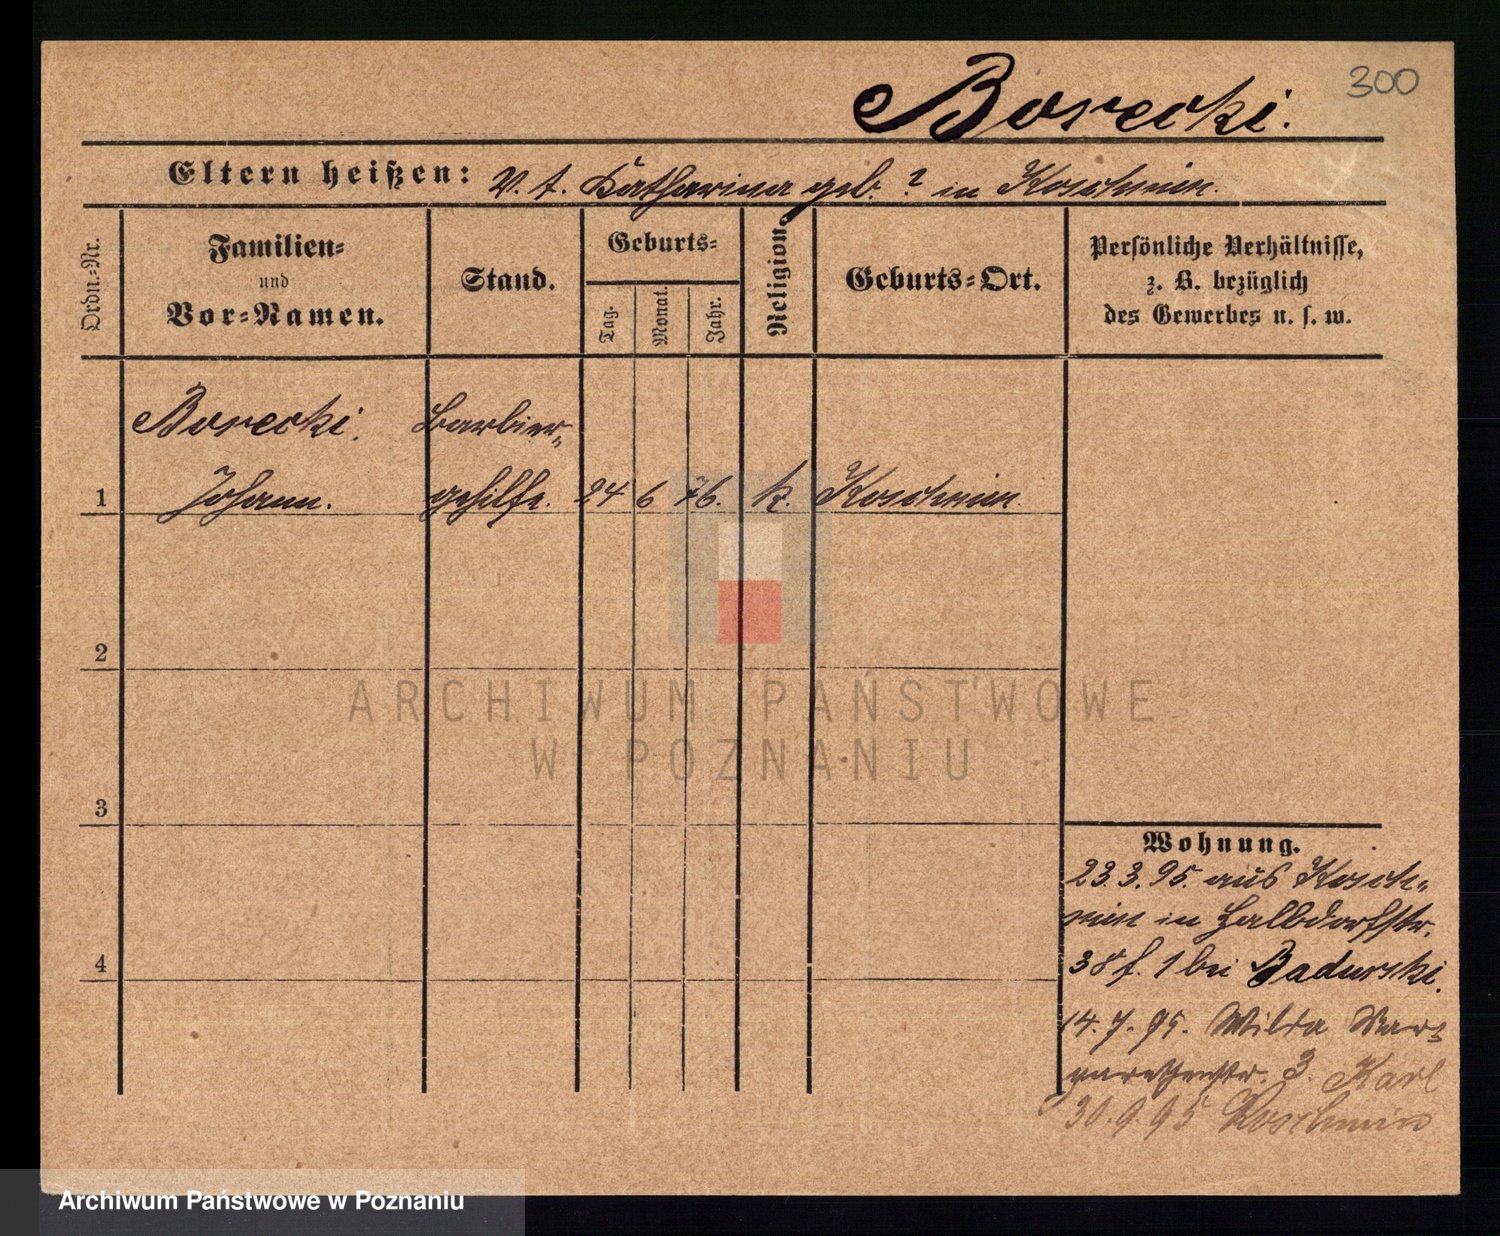 300
Borecki.
Eltern heißen: V. t. Katharina geb. ? in Koschmin.
Ordn.=Nr.
Familien=
und
Vor=Namen.
Stand.
Geburts=
Tag.
Monat.
Jahr.
Religion.
Geburts=Ort.
Persönliche Verhältnisse,
z. B. bezüglich
des Gewerbes u. s. w.
Borecki. Barbier-
1 Johann. gehilfe. 24 6 76. k. Koschmin.
2
3
4
Wohnung.
23.3.95. aus Kosch-
min in Halbdorfstr.
38 f. 1 bei Badurski.
14.7.95. Wilda Mar-
garethenstr. 3. Karl
30.9.95 Koschmin
ARCHIWUM PAŃSTWOWE
W POZNANIU
Archiwum Państwowe w Poznaniu